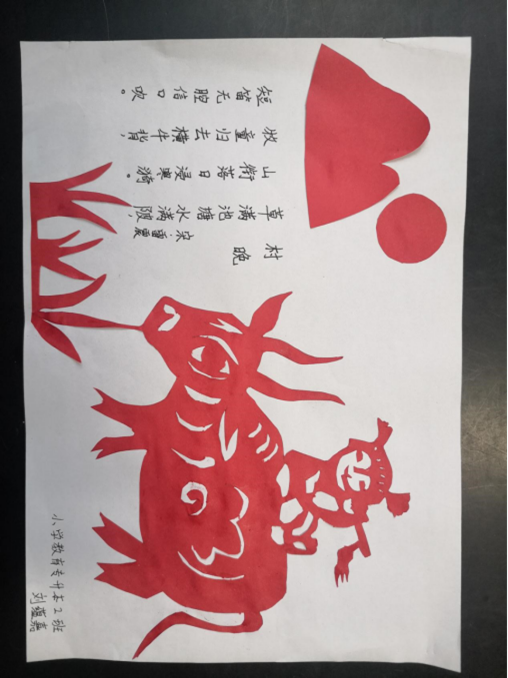 村晚
宋·雷震
草满池塘水满陂,
山衔落日浸寒漪。
牧童归去横牛背,
短笛无腔信口吹。
小学教育专升本2班
刘蕴嘉